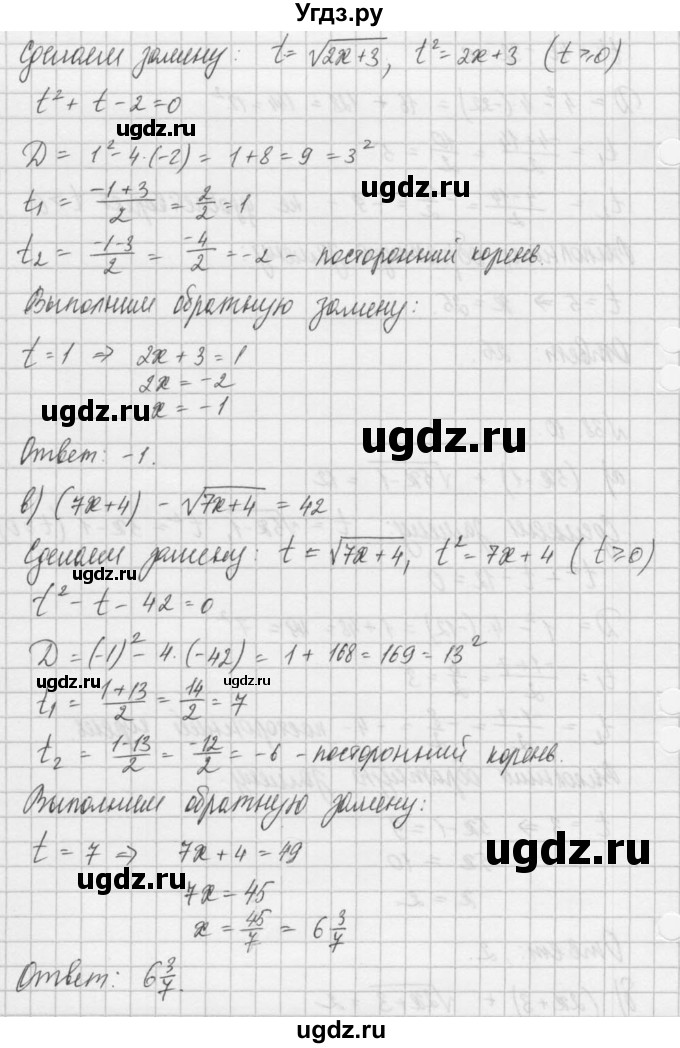 Угдз.ру
Сделаем замену: t = √(2x+3), t² = 2x+3 (t ≥ 0)
t² + t - 2 = 0
ugdz.ru
D = 1² - 4·(-2) = 1 + 8 = 9 = 3²
t₁ = (-1+3)/2 = 2/2 = 1
ugdz.ru ugdz.ru
t₂ = (-1-3)/2 = -4/2 = -2 - посторонний корень.
Выполним обратную замену:
t = 1 ⇒ 2x + 3 = 1
2x = -2
ugdz.ru
x = -1
ugdz.ru
Ответ: -1.
в) (7x+4) - √(7x+4) = 42
Сделаем замену: t = √(7x+4), t² = 7x+4 (t ≥ 0)
ugdz.ru
t² - t - 42 = 0
D = (-1)² - 4·(-42) = 1 + 168 = 169 = 13²
ugdz.ru ugdz.ru
t₁ = (1+13)/2 = 14/2 = 7
t₂ = (1-13)/2 = -12/2 = -6 - посторонний корень.
Выполним обратную замену:
t = 7 ⇒ 7x + 4 = 49
ugdz.ru
ugdz.ru
7x = 45
x = 45/7 = 6 3/7
Ответ: 6 3/7.
ugdz.ru